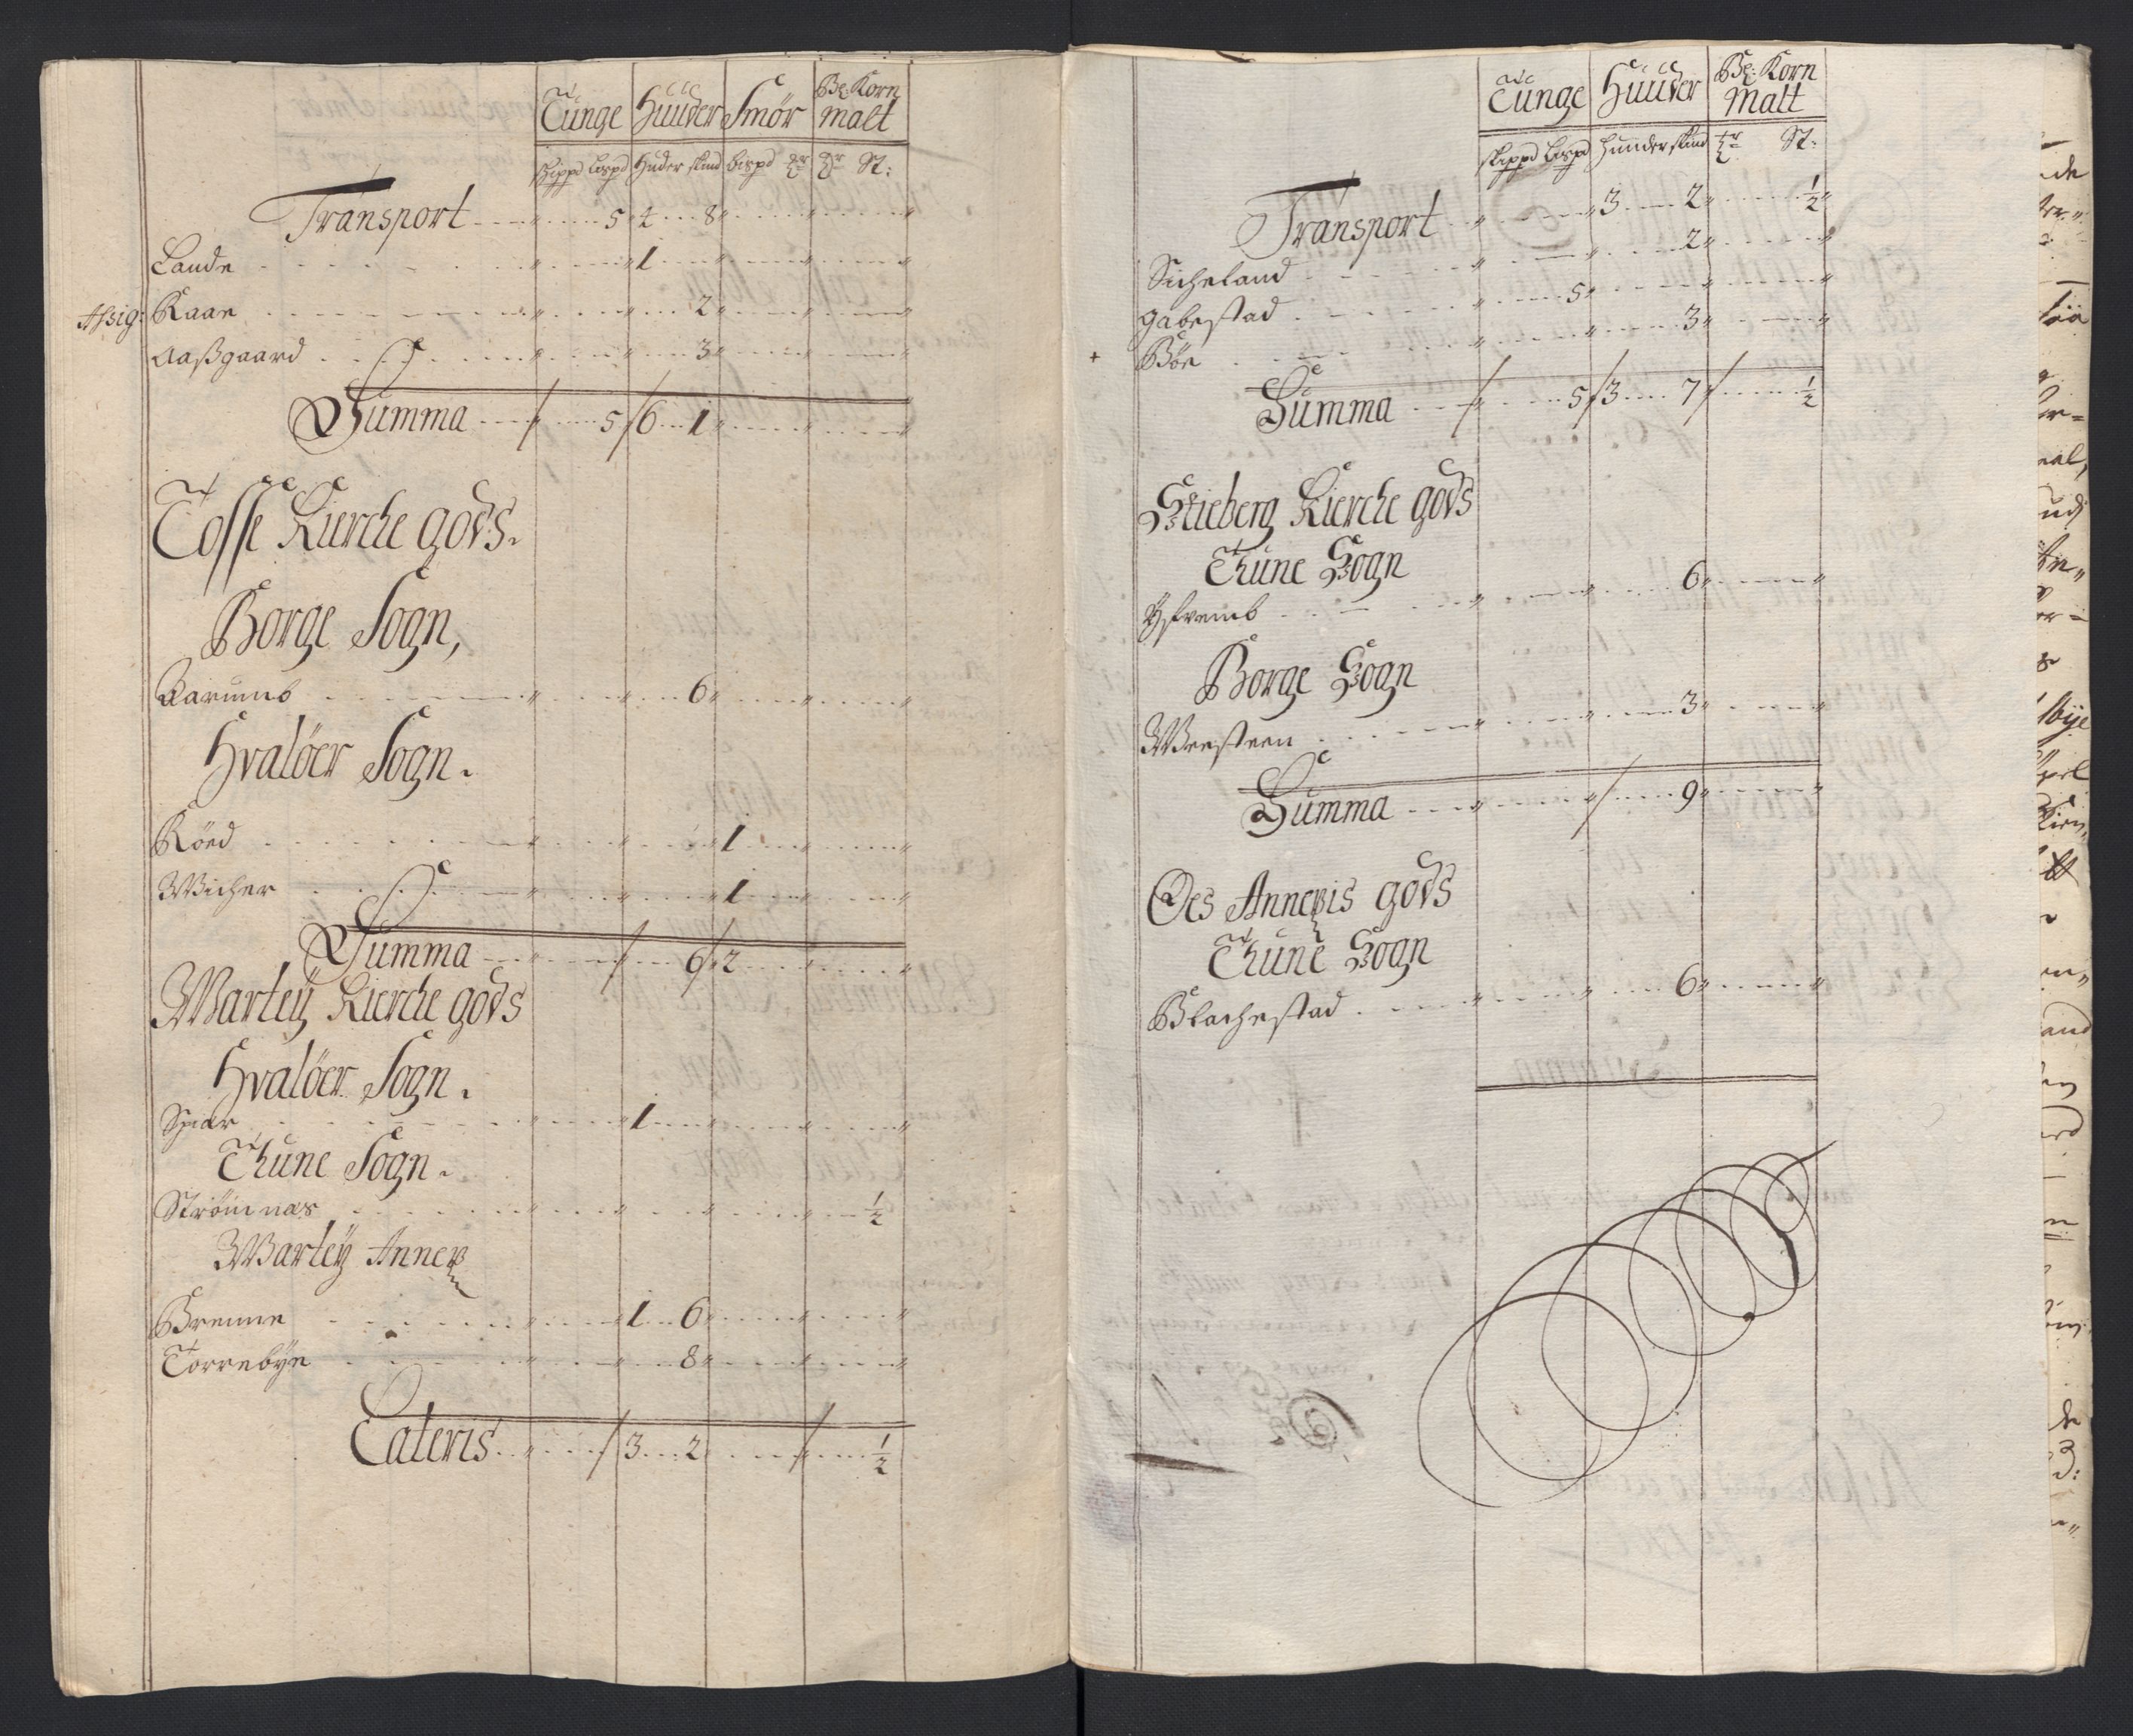 Tunge Huuder Smör Bÿ: Korn
malt
skippd Lispd Huder skind Lispd St:
Transport 5 4 8
Lande 1
Afsig: Kaae 2
Aaßgaard 3
Summa 5 6 1
Tosse Kierche gods.
Borge Sogn,
Karumb 6
Hvalöer Sogn.
Röed 1
Wicher 1
Summa 6 2
Marteÿ Kierche gods
Hvalöer Sogn.
Spiær 1
Thune Sogn.
Strömnæs ½
Marteÿ Annex
Brenne 1 6
Torrebÿe 8
Lateris 3 2 ½
Tunge Huuder Bÿ: Korn
Malt
skippd Lispd Hunder skind St:
Transport 3 2 ½
Sicheland 2
Gabestad 5
Böe 3
Summa 5 3 7 ½
Skieberg Kierche gods
Thune Sogn
6
Borge Sogn
Weesteen 3
Summa 9
Oes Annexis gods
Thune Sogn
Blachestad 6